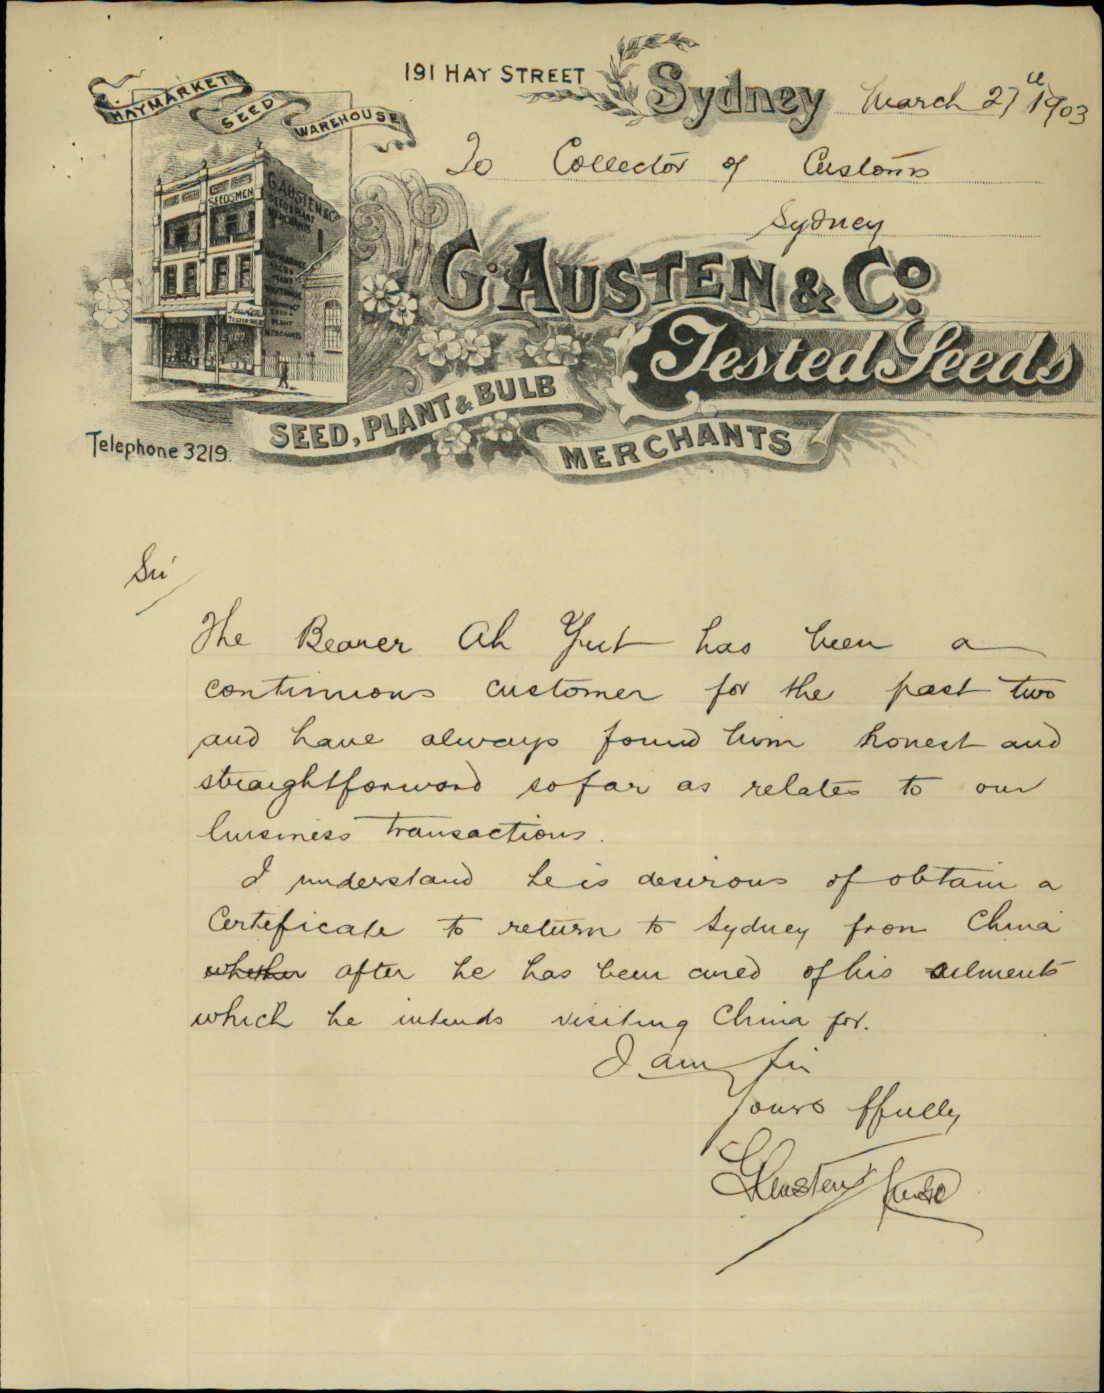 HAYMARKET SEED WAREHOUSE
191 HAY STREET Sydney March 27th 1903
To Collector of Customs
Sydney
SEEDSMEN
G. AUSTEN & Co.
Tested Seeds
SEED, PLANT & BULB
MERCHANTS
Telephone 3219.
Sir
The Bearer Ah Yut has been a
continuous customer for the past two
and have always found him honest and
straightforward so far as relates to our
business transactions.
I understand he is desirous of obtain a
Certificate to return to Sydney from China
whether after he has been cured of his ailments
which he intends visiting China for.
I am Sir
Yours ffully
G Austen